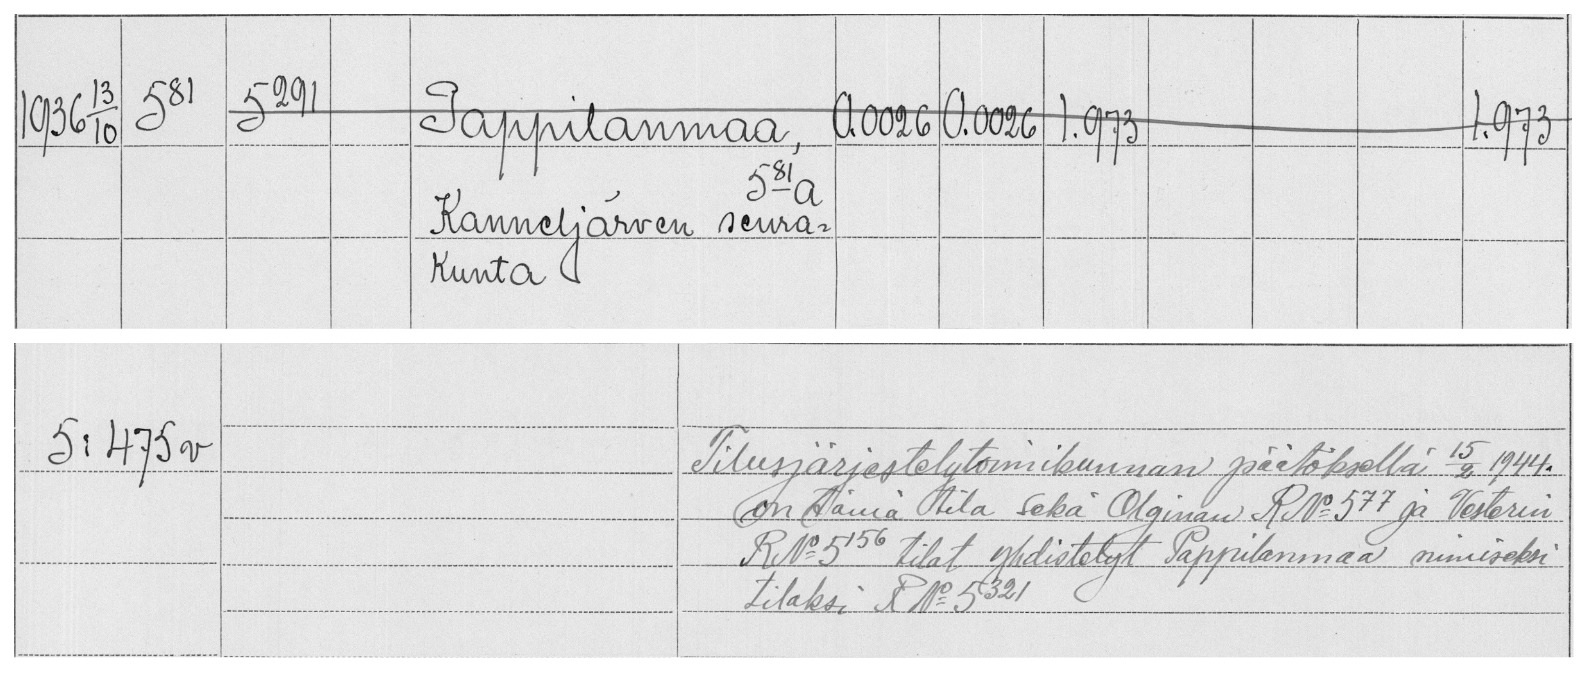 1936 13/10 5⁸¹ 5²⁹¹ Pappilanmaa, 0.0026 0.0026 1.973 1.973
5⁸¹a
Kanneljärven seura=
kunta
5:475v
Tilusjärjestelytoimikunnan päätöksellä 15/2 1944.
on tämä tila sekä Olginan RNº 5⁷⁷ ja Vesterin
RNº 5¹⁵⁶ tilat yhdistetyt Pappilanmaa nimiseksi
tilaksi RNº 5³²¹